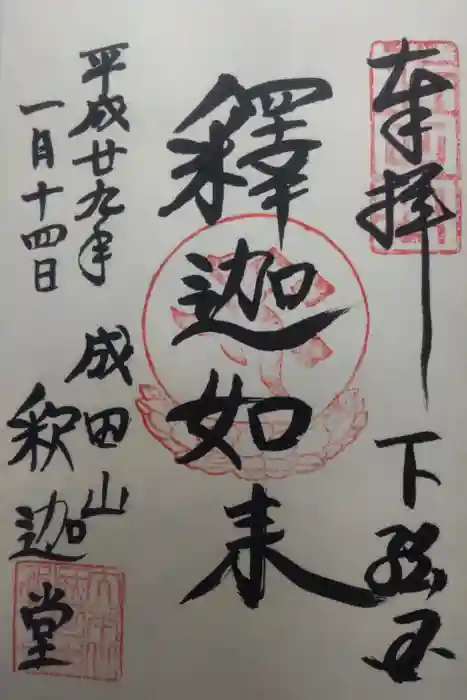 奉拝
下総國
釋迦如来
平成廿九年
一月十四日
成田山
釈迦堂